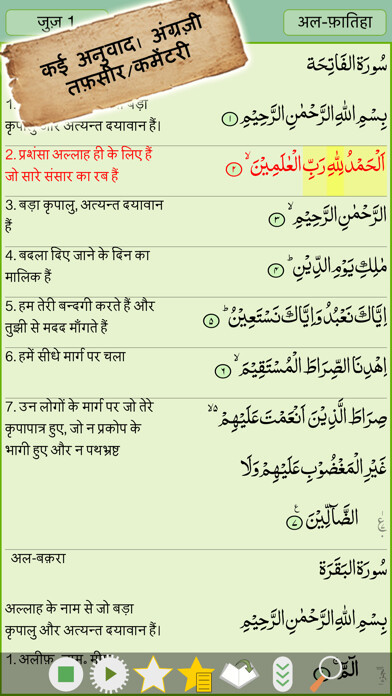 जुज़ 1
अल-फ़ातिहा
कई अनुवाद। अंग्रज़ी
तफ़सीर/कमेंटरी
سُورَةُ الفَاتِحَة
1.
बड़ा
कृपालु और अत्यन्त दयावान हैं।
بِسْمِ اللهِ الرَّحْمٰنِ الرَّحِيْمِ ۝١
2. प्रशंसा अल्लाह ही के लिए हैं
जो सारे संसार का रब हैं
اَلْحَمْدُ لِلّٰهِ رَبِّ الْعٰلَمِيْنَ ۙ ۝٢
3. बड़ा कृपालु, अत्यन्त दयावान
हैं
الرَّحْمٰنِ الرَّحِيْمِ ۙ ۝٣
4. बदला दिए जाने के दिन का
मालिक हैं
مٰلِكِ يَوْمِ الدِّيْنِ ؕ ۝٤
5. हम तेरी बन्दगी करते हैं और
तुझी से मदद माँगते हैं
اِيَّاكَ نَعْبُدُ وَاِيَّاكَ نَسْتَعِيْنُ ؕ ۝٥
6. हमें सीधे मार्ग पर चला
اِهْدِنَا الصِّرَاطَ الْمُسْتَقِيْمَ ۙ ۝٦
7. उन लोगों के मार्ग पर जो तेरे
कृपापात्र हुए, जो न प्रकोप के
भागी हुए और न पथभ्रष्ट
صِرَاطَ الَّذِيْنَ اَنْعَمْتَ عَلَيْهِمْ ۙ۬
غَيْرِ الْمَغْضُوْبِ عَلَيْهِمْ وَلَا
الضَّآلِّيْنَ ۝٧
अल-बक़रा
سُورَةُ البَقَرَة
अल्लाह के नाम से जो बड़ा
कृपालु और अत्यन्त दयावान हैं।
بِسْمِ اللهِ الرَّحْمٰنِ الرَّحِيْمِ
1. अलीफ़॰ लाम॰ मी
الٓمّٓ